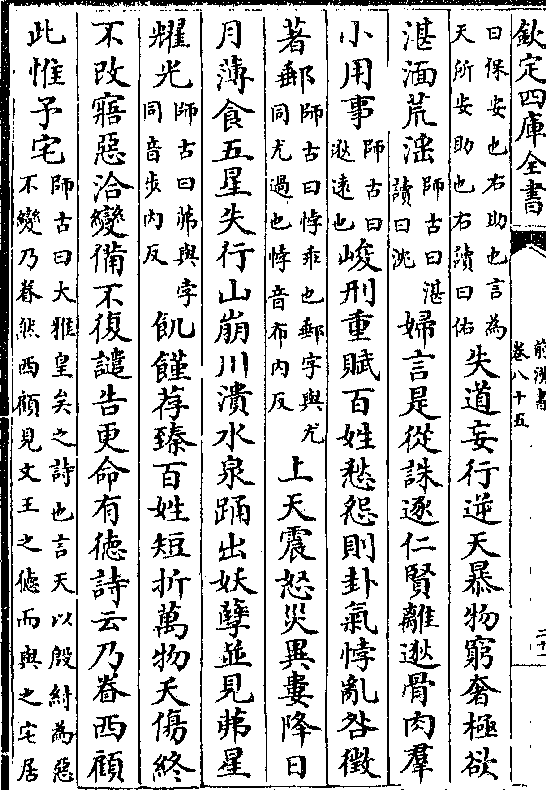 欽定四庫全書
前漢書
卷八十五
二十
曰保安也右助也言為
天所安助也右讀曰佑
失道妄行逆天暴物窮奢極欲
湛湎荒淫
師古曰湛
讀曰沈
婦言是從誅逐仁賢離逖骨肉羣
小用事
師古曰
逖遠也
峻刑重賦百姓愁怨則卦氣悖亂咎徵
著郵
師古曰悖乖也郵字與尤
同尤過也悖音布內反
上天震怒災異婁降日
月薄食五星失行山崩川潰水泉踊出妖孽並見茀星
耀光
師古曰茀與孛
同音步內反
飢饉荐臻百姓短折萬物夭傷終
不改寤惡洽變備不復譴告更命有德詩云乃眷西顧
此惟予宅
師古曰大雅皇矣之詩也言天以殷紂為惡
不變乃眷然西顧見文王之德而與之宅居